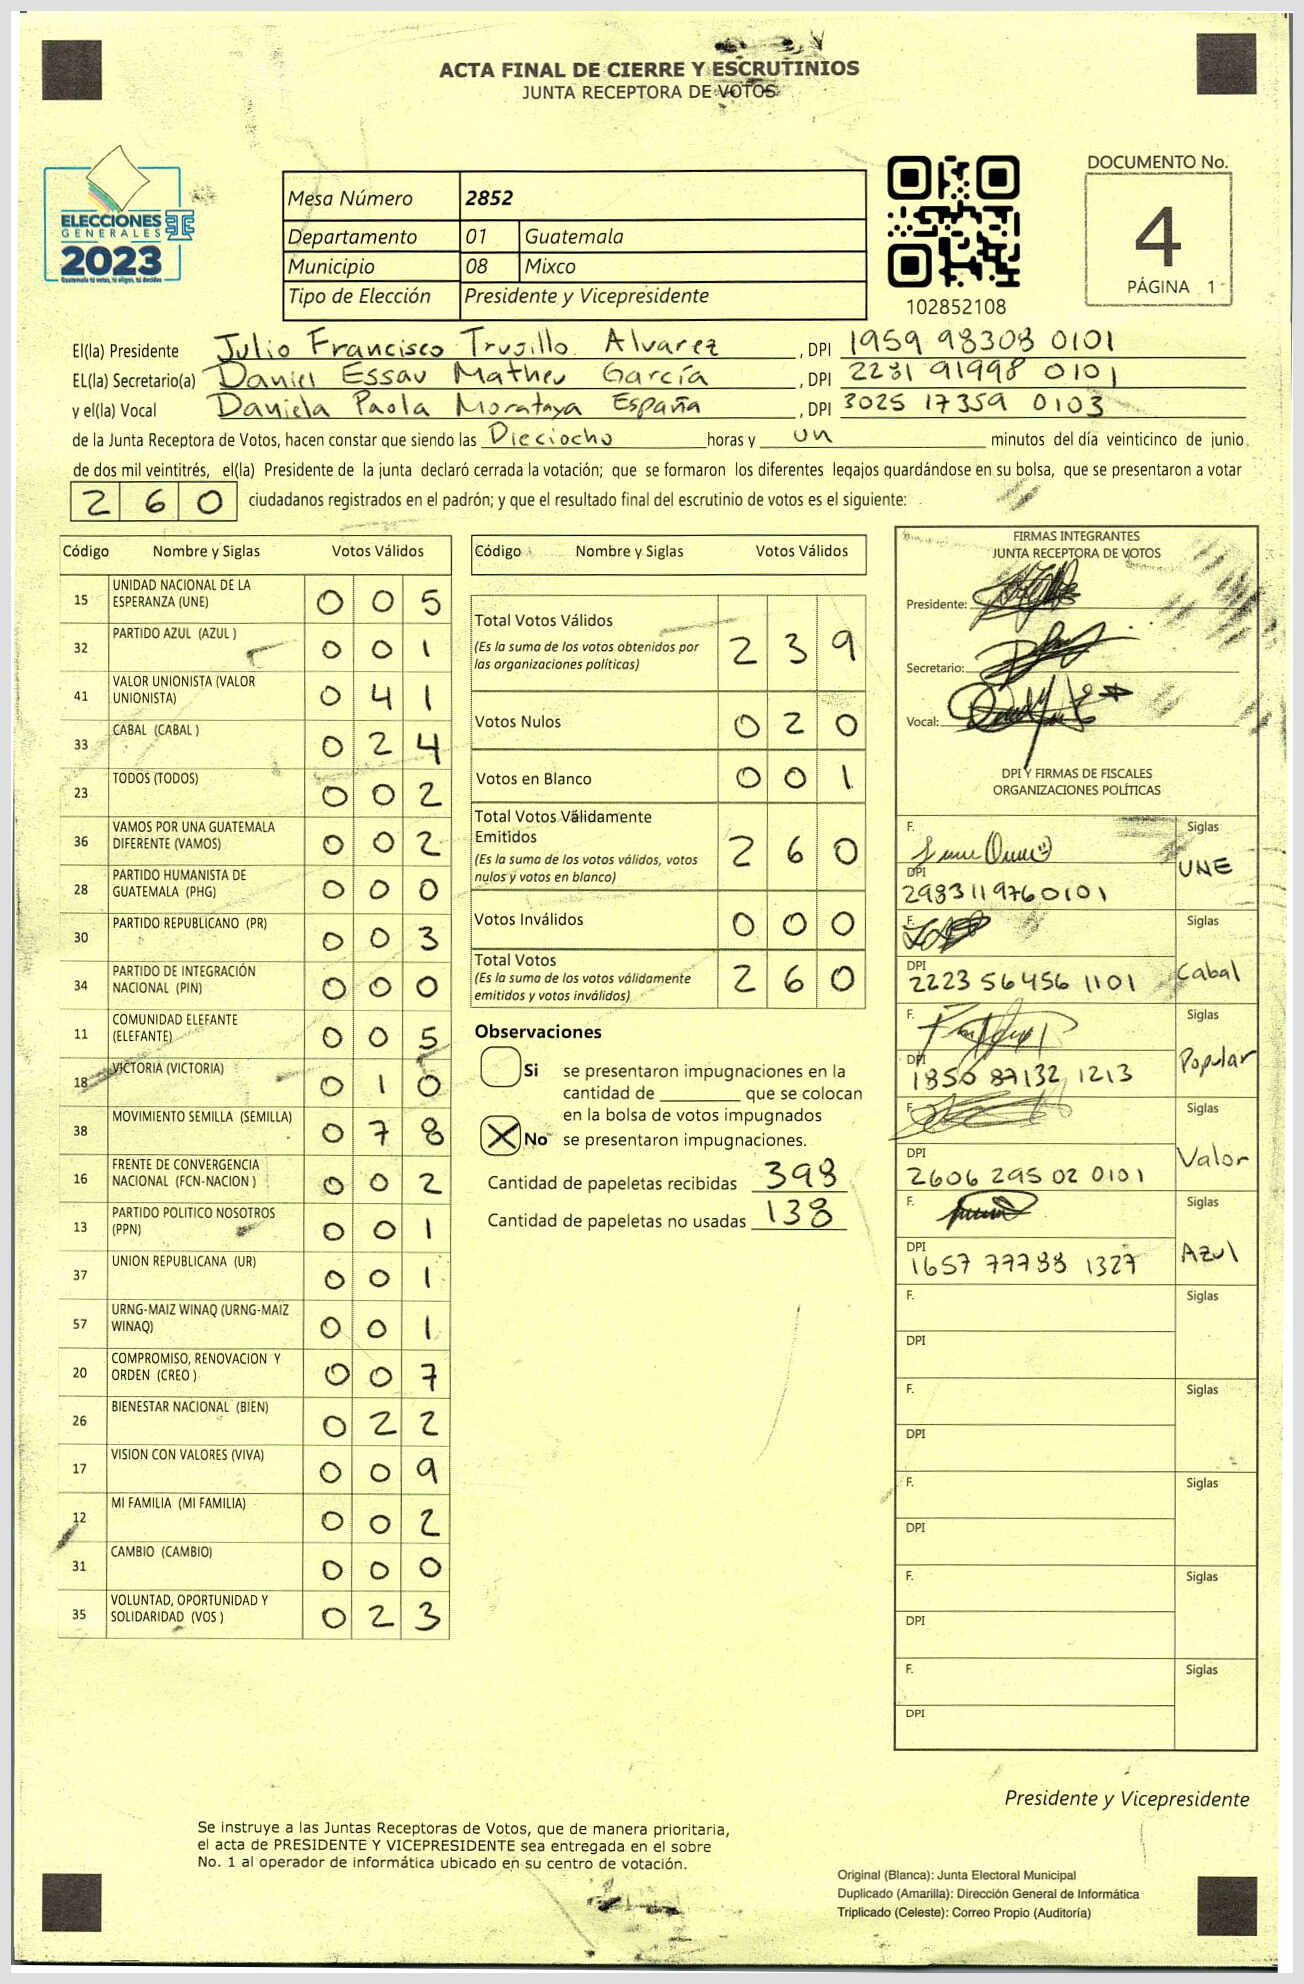 ACTA FINAL DE CIERRE Y ESCRUTINIOS
JUNTA RECEPTORA DE VOTOS
ELECCIONES
GENERALES
2023
Guatemala tú votas, tú eliges, tú decides
Mesa Número 2852
Departamento 01 Guatemala
Municipio 08 Mixco
Tipo de Elección Presidente y Vicepresidente
102852108
DOCUMENTO No.
4
PÁGINA 1
El(la) Presidente Julio Francisco Trujillo Alvarez, DPI 1959 98308 0101
EL(la) Secretario(a) Daniel Essau Matheu García, DPI 2231 91998 0101
y el(la) Vocal Daniela Paola Morataya España, DPI 3025 17359 0103
de la Junta Receptora de Votos, hacen constar que siendo las Dieciocho horas y un minutos del día veinticinco de junio
de dos mil veintitrés, el(la) Presidente de la junta declaró cerrada la votación; que se formaron los diferentes legajos quardándose en su bolsa, que se presentaron a votar
260 ciudadanos registrados en el padrón; y que el resultado final del escrutinio de votos es el siguiente:
Código Nombre y Siglas Votos Válidos
15 UNIDAD NACIONAL DE LA ESPERANZA (UNE) 0 0 5
32 PARTIDO AZUL (AZUL ) 0 0 1
41 VALOR UNIONISTA (VALOR UNIONISTA) 0 4 1
33 CABAL (CABAL ) 0 2 4
23 TODOS (TODOS) 0 0 2
36 VAMOS POR UNA GUATEMALA DIFERENTE (VAMOS) 0 0 2
28 PARTIDO HUMANISTA DE GUATEMALA (PHG) 0 0 0
30 PARTIDO REPUBLICANO (PR) 0 0 3
34 PARTIDO DE INTEGRACIÓN NACIONAL (PIN) 0 0 0
11 COMUNIDAD ELEFANTE (ELEFANTE) 0 0 5
18 VICTORIA (VICTORIA) 0 1 0
38 MOVIMIENTO SEMILLA (SEMILLA) 0 7 8
16 FRENTE DE CONVERGENCIA NACIONAL (FCN-NACION ) 0 0 2
13 PARTIDO POLITICO NOSOTROS (PPN) 0 0 1
37 UNION REPUBLICANA (UR) 0 0 1
57 URNG-MAIZ WINAQ (URNG-MAIZ WINAQ) 0 0 1
20 COMPROMISO, RENOVACION Y ORDEN (CREO ) 0 0 7
26 BIENESTAR NACIONAL (BIEN) 0 2 2
17 VISION CON VALORES (VIVA) 0 0 9
12 MI FAMILIA (MI FAMILIA) 0 0 2
31 CAMBIO (CAMBIO) 0 0 0
35 VOLUNTAD, OPORTUNIDAD Y SOLIDARIDAD (VOS ) 0 2 3
Código Nombre y Siglas Votos Válidos
Total Votos Válidos 2 3 9
(Es la suma de los votos obtenidos por
las organizaciones políticas)
Votos Nulos 0 2 0
Votos en Blanco 0 0 1
Total Votos Válidamente
Emitidos 2 6 0
(Es la suma de los votos válidos, votos
nulos y votos en blanco)
Votos Inválidos 0 0 0
Total Votos 2 6 0
(Es la suma de los votos válidamente
emitidos y votos inválidos)
Observaciones
Si se presentaron impugnaciones en la
cantidad de ________ que se colocan
en la bolsa de votos impugnados
X No se presentaron impugnaciones.
Cantidad de papeletas recibidas 398
Cantidad de papeletas no usadas 138
FIRMAS INTEGRANTES
JUNTA RECEPTORA DE VOTOS
Presidente:
Secretario:
Vocal:
DPI Y FIRMAS DE FISCALES
ORGANIZACIONES POLÍTICAS
F. Siglas
UNE
DPI
2983119760101
F. Siglas
Cabal
DPI
2223 56456 1101
F. Siglas
Popular
DPI
1850 87132 1213
F. Siglas
Valor
DPI
2606 295 02 0101
F. Siglas
Azul
DPI
1657 77788 1327
F. Siglas
DPI
F. Siglas
DPI
F. Siglas
DPI
F. Siglas
DPI
F. Siglas
DPI
Presidente y Vicepresidente
Se instruye a las Juntas Receptoras de Votos, que de manera prioritaria,
el acta de PRESIDENTE Y VICEPRESIDENTE sea entregada en el sobre
No. 1 al operador de informática ubicado en su centro de votación.
Original (Blanca): Junta Electoral Municipal
Duplicado (Amarilla): Dirección General de Informática
Triplicado (Celeste): Correo Propio (Auditoría)